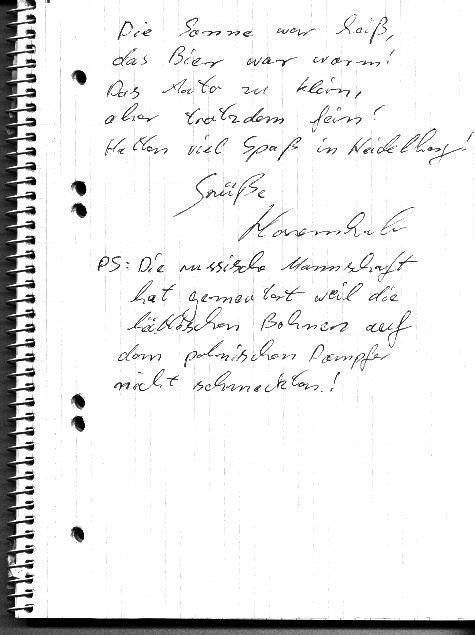 Die Sonne war heiß,
das Bier war warm!
Das Auto zu klein,
aber trotzdem fein!
Hatten viel Spaß in Heidelberg!
Grüße
PS: Die russische Mannschaft
hat gemeutert weil die
Bohnen auf
dem polnischen Dampfer
nicht schmeckten!